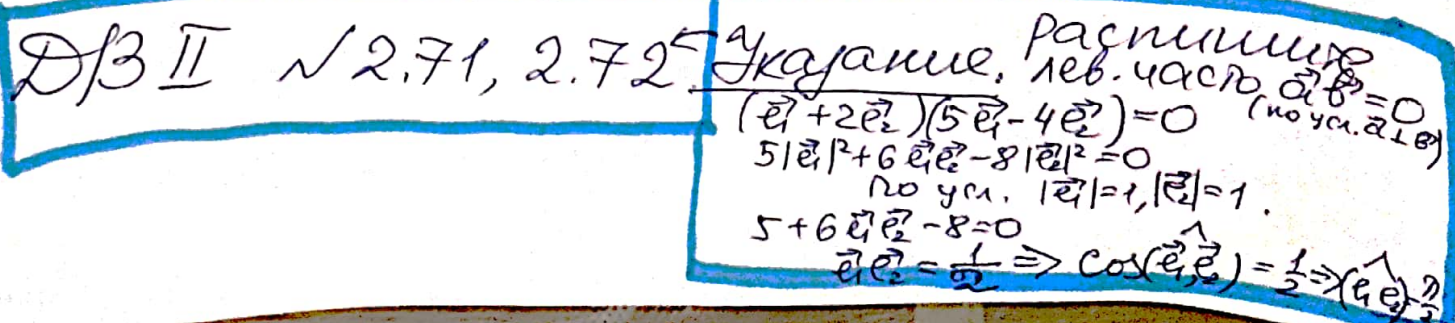 ДЗ II № 2.71, 2.72 ← Указание. Распишите
лев. часть \vec{a}\vec{b}=0
(по усл. \vec{a}⊥\vec{b})
(\vec{e_1}+2\vec{e_2})(5\vec{e_1}-4\vec{e_2})=0
5|\vec{e_1}|²+6\vec{e_1}\vec{e_2}-8|\vec{e_2}|²=0
по усл. |\vec{e_1}|=1, |\vec{e_2}|=1.
5+6\vec{e_1}\vec{e_2}-8=0
\vec{e_1}\vec{e_2}=\frac{1}{2} ⇒ cos(\widehat{\vec{e_1},\vec{e_2}})=\frac{1}{2} ⇒ (\widehat{e_1 e_2})=\frac{π}{3}